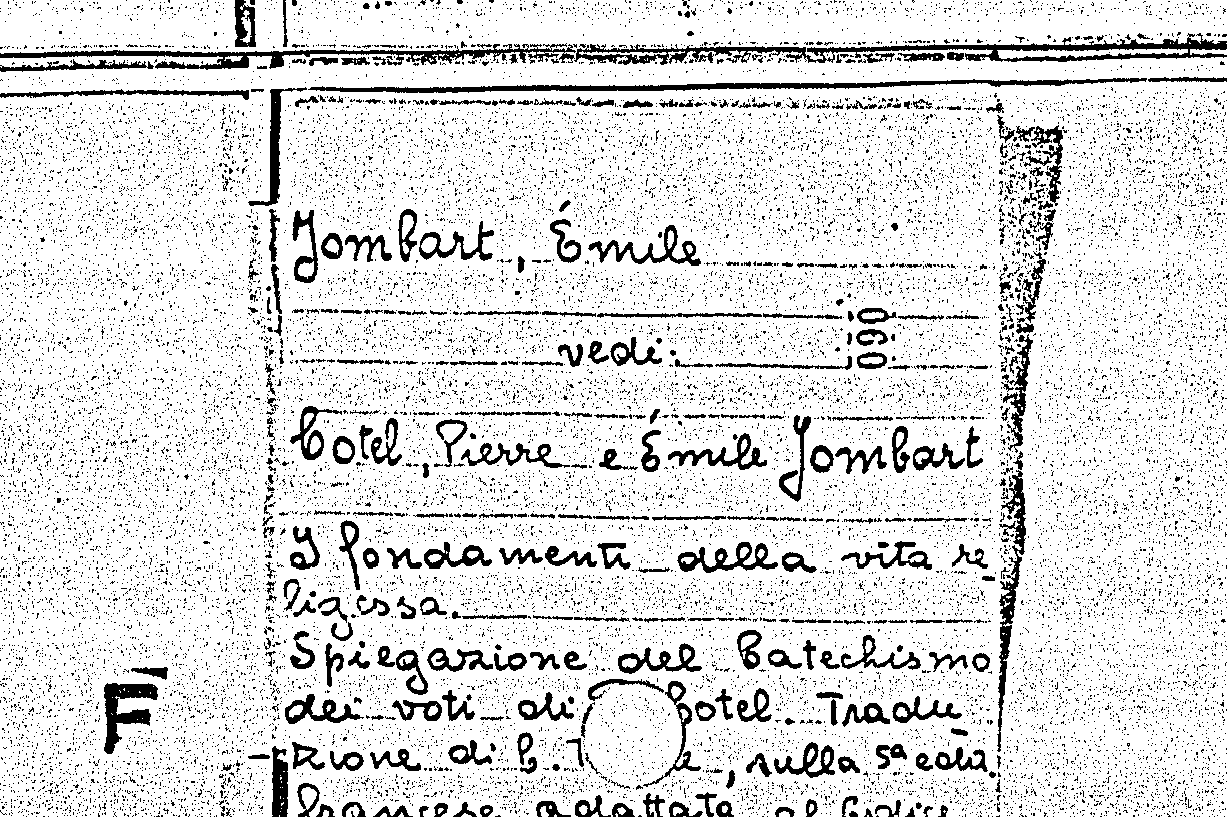 Jombart, Émile
vedi:
090
Cotel, Pierre e Émile Jombart
I fondamenti della vita re-
ligiosa.
Spiegazione del Catechismo
dei voti di Cotel. Tradu-
F
zione di C. , sulla 5ª ediz.
francese adattata al Codice